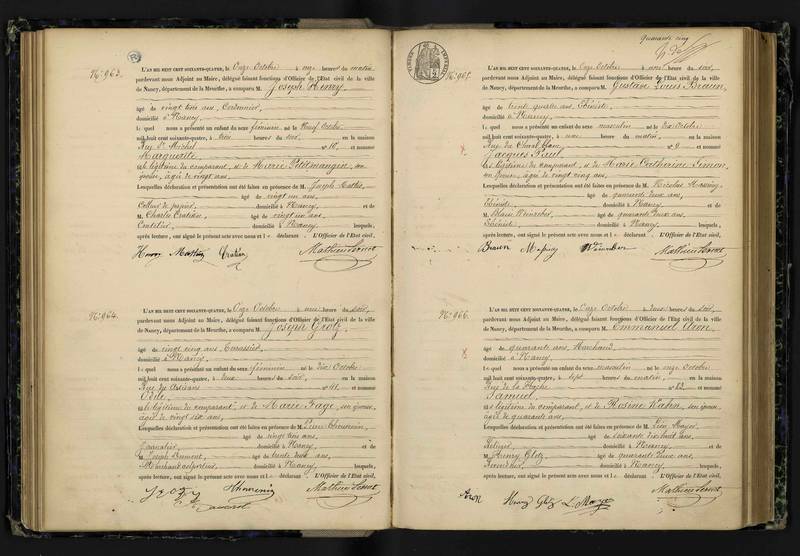 N° 963.
L'AN MIL HUIT CENT SOIXANTE-QUATRE, le Onze Octobre à onze heures du matin
pardevant nous Adjoint au Maire, délégué faisant fonctions d'Officier de l'État civil de la ville
de Nancy, département de la Meurthe, a comparu M. Joseph Henry,
âgé de vingt trois ans, Cordonnier,
domicilié à Nancy,
lequel nous a présenté un enfant du sexe féminin né le Neuf Octobre
mil huit cent soixante-quatre, à heures du soir, en la maison
Rue St Michel n° 18, et nommé
Marguerite
fille légitime du comparant, et de Marie Petitmangin, son
épouse, âgée de vingt ans,
Lesquelles déclaration et présentation ont été faites en présence de M. Joseph
âgé de vingt un ans,
Colleur de papier, domicilié à Nancy, et de
M. Charles âgé de vingt un ans,
Coutelier, domicilié à Nancy, lesquels,
après lecture, ont signé le présent acte avec nous et le déclarant. L'Officier de l'État civil,
Henry
N° 964.
L'AN MIL HUIT CENT SOIXANTE-QUATRE, le Onze Octobre à une heure du soir,
pardevant nous Adjoint au Maire, délégué faisant fonctions d'Officier de l'État civil de la ville
de Nancy, département de la Meurthe, a comparu M. Joseph
âgé de vingt cinq ans, Terrassier,
domicilié à Nancy,
lequel nous a présenté un enfant du sexe féminin né le dix Octobre
mil huit cent soixante-quatre, à deux heures du soir, en la maison
Rue des n° 41, et nommé
Odile
fille légitime du comparant et de Marie Fage, son épouse,
âgée de vingt six ans,
Lesquelles déclaration et présentation ont été faites en présence de M. Pierre
âgé de vingt trois ans,
Journalier, domicilié à Nancy, et de
M. Joseph Dumont, âgé de trente deux ans,
Marchand colporteur, domicilié à Nancy, lesquels,
après lecture, ont signé le présent acte avec nous et le déclarant. L'Officier de l'État civil,
Quarante cinq
N° 965.
L'AN MIL HUIT CENT SOIXANTE-QUATRE, le Onze Octobre à une heure du soir,
pardevant nous Adjoint au Maire, délégué faisant fonctions d'Officier de l'État civil de la ville
de Nancy, département de la Meurthe, a comparu M. Gustave Louis Braun,
âgé de trente quatre ans, Ébéniste,
domicilié à Nancy,
lequel nous a présenté un enfant du sexe masculin né le dix Octobre
mil huit cent soixante-quatre, à onze heures du matin, en la maison
Rue du Cheval blanc n° 9 et nommé
Jacques Paul,
fils légitime du comparant, et de Marie Catherine Simon,
son épouse, âgée de vingt cinq ans,
Lesquelles déclaration et présentation ont été faites en présence de M. Nicolas
âgé de quarante ans,
Ébéniste, domicilié à Nancy, et de
M. âgé de quarante deux ans,
Ébéniste, domicilié à Nancy, lesquels,
après lecture, ont signé le présent acte avec nous et le déclarant. L'Officier de l'État civil,
Braun
N° 966.
L'AN MIL HUIT CENT SOIXANTE-QUATRE, le Onze Octobre à deux heures du soir,
pardevant nous Adjoint au Maire, délégué faisant fonctions d'Officier de l'État civil de la ville
de Nancy, département de la Meurthe, a comparu M. Emmanuel Aron,
âgé de quarante ans, Marchand,
domicilié à Nancy,
lequel nous a présenté un enfant du sexe masculin né le onze Octobre
mil huit cent soixante-quatre, à sept heures du matin, en la maison
Rue de la Hache n° 63, et nommé
Samuel,
fils légitime du comparant, et de Rosine Kahn, son épouse,
âgée de quarante ans,
Lesquelles déclaration et présentation ont été faites en présence de M. Léon Mayer,
âgé de soixante dix huit ans,
domicilié à Nancy, et de
M. Henry Glotz, âgé de quarante deux ans,
domicilié à Nancy, lesquels,
après lecture, ont signé le présent acte avec nous et le déclarant. L'Officier de l'État civil,
Aron Henry Glotz L. Mayer